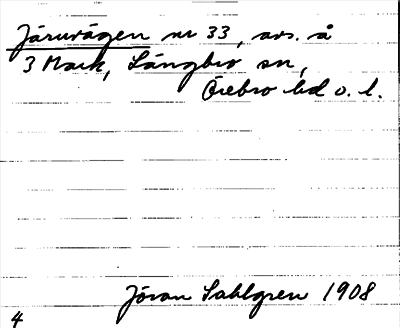 Järnvägen nr 33, avs. å
3 Mark, Längbro sn,
Örebro hd o. l.
Jöran Sahlgren 1908
4